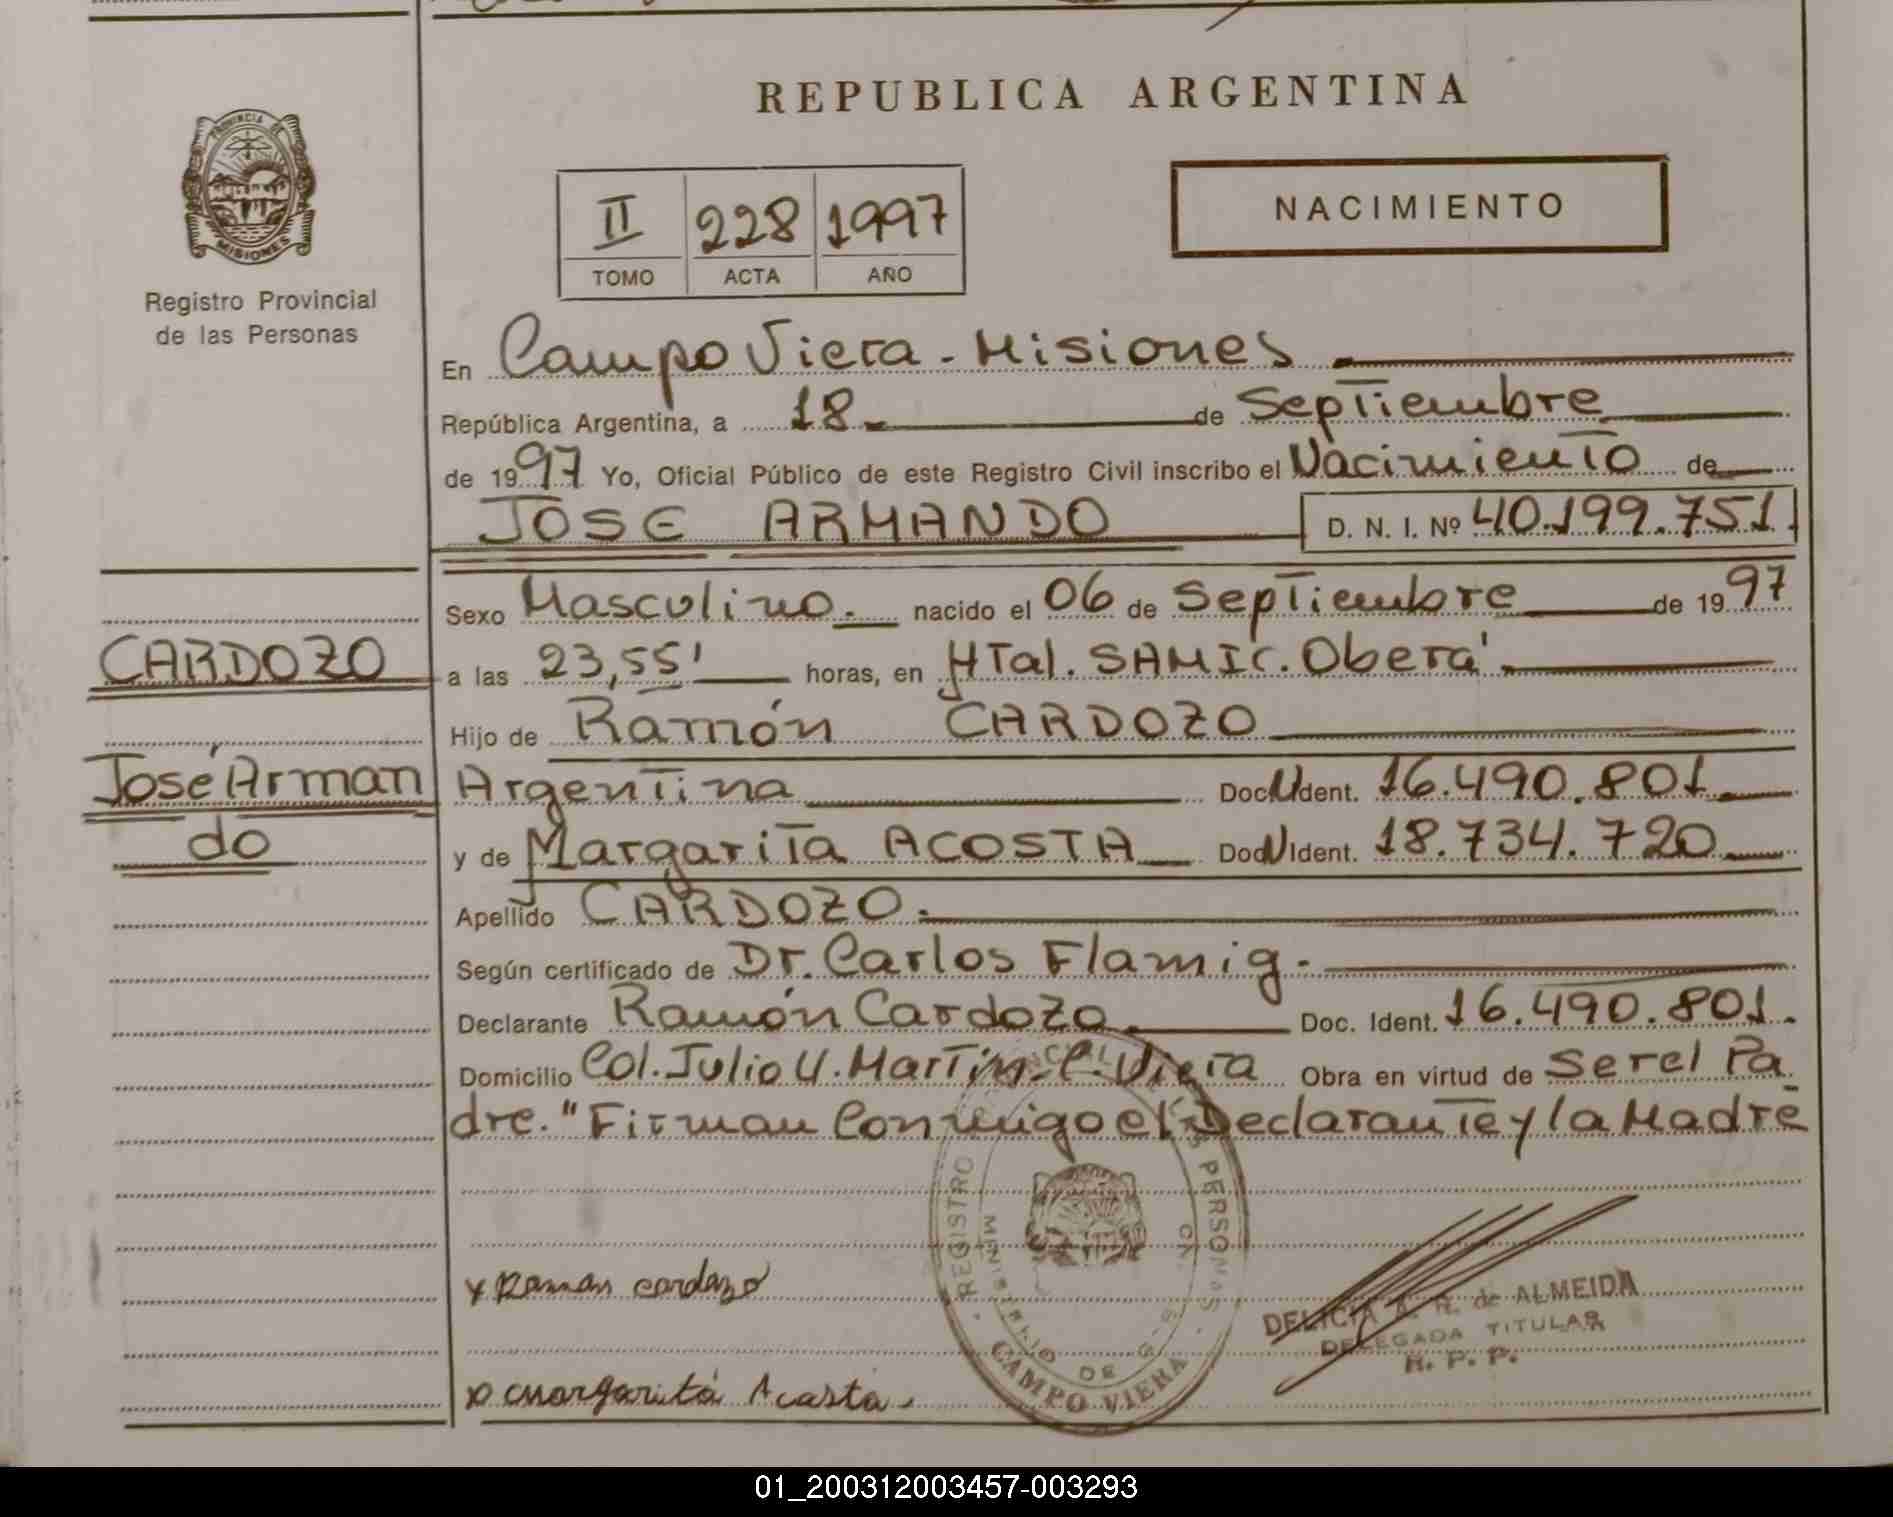 REPUBLICA ARGENTINA
PROVINCIA DE
MISIONES
Registro Provincial
de las Personas
II 228 1997
TOMO ACTA AÑO
NACIMIENTO
En Campo Viera - Misiones
República Argentina, a 18 de Septiembre
de 1997 Yo, Oficial Público de este Registro Civil inscribo el Nacimiento de
JOSE ARMANDO D. N. I. Nº 40.199.751.
Sexo Masculino. nacido el 06 de Septiembre de 1997
CARDOZO
a las 23,55' horas, en HTal. SAMIC. Oberá
Hijo de Ramón CARDOZO
José Arman
do
Argentina Doc. Ident. 16.490.801
y de Margarita ACOSTA Doc. Ident. 18.734.720
Apellido CARDOZO.
Según certificado de Dr. Carlos Flamig.
Declarante Ramón Cardozo Doc. Ident. 16.490.801.
Domicilio Col. Julio U. Martin - C. Viera Obra en virtud de Ser el Pa
dre. "Firman Conmigo el Declarante y la Madre
REGISTRO PERSONAS
MINISTERIO DE
CAMPO VIERA
x Raman cardozo
DELICIA A. R. de ALMEIDA
DELEGADA TITULAR
R. P. P.
margarita Acosta.
01_200312003457-003293